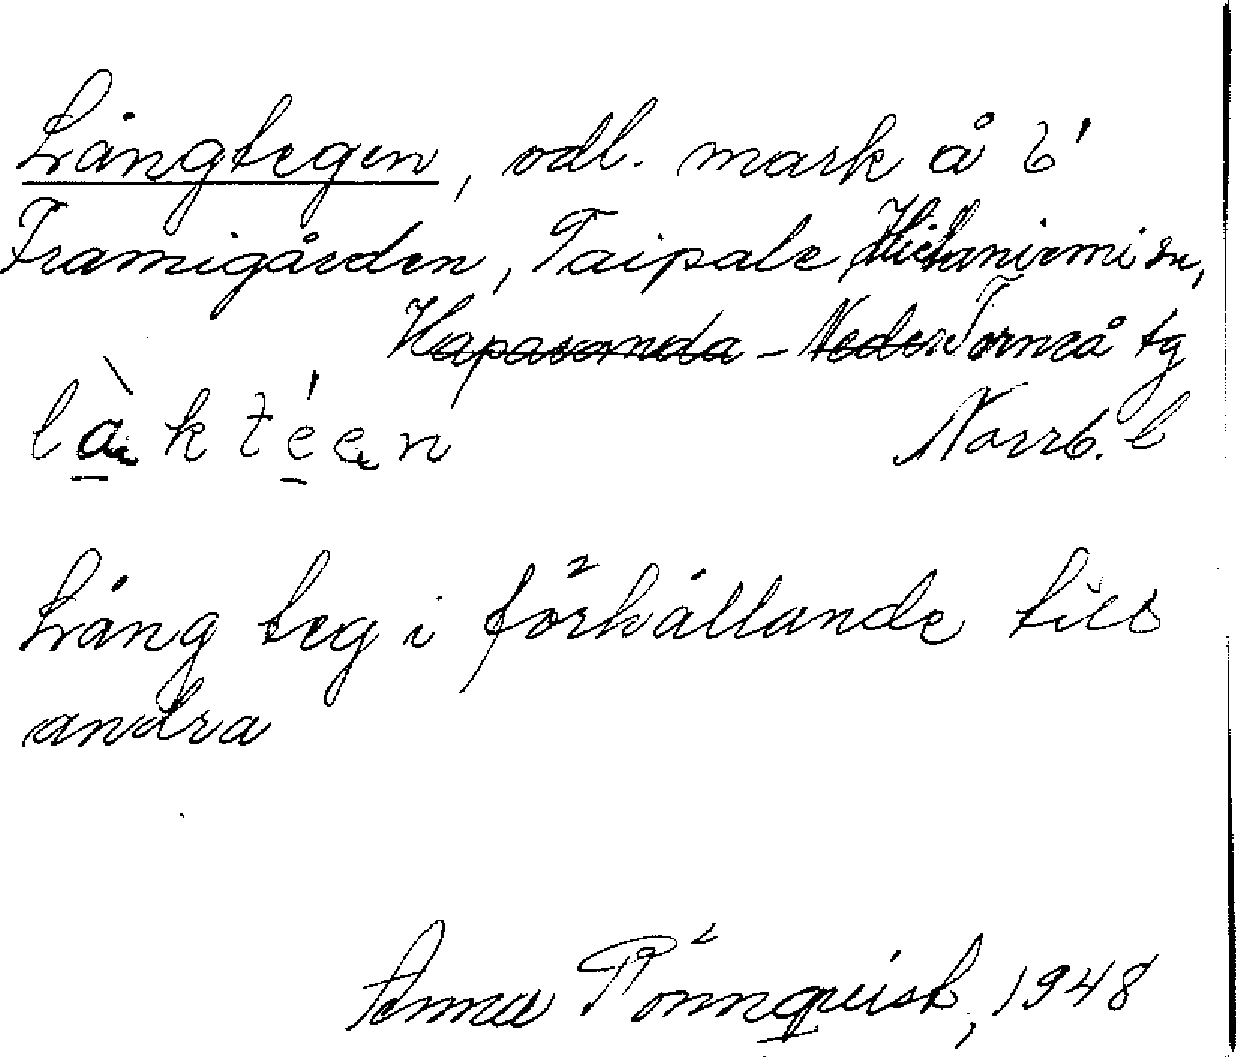 Långtegen, odl. mark å 6'
Framigården, Taipale Hietaniemi sn,
Haparanda - Neder Torneå tg
làktéen Norrb. l
Lång teg i förhållande till
andra
Anna Rönnqvist, 1948